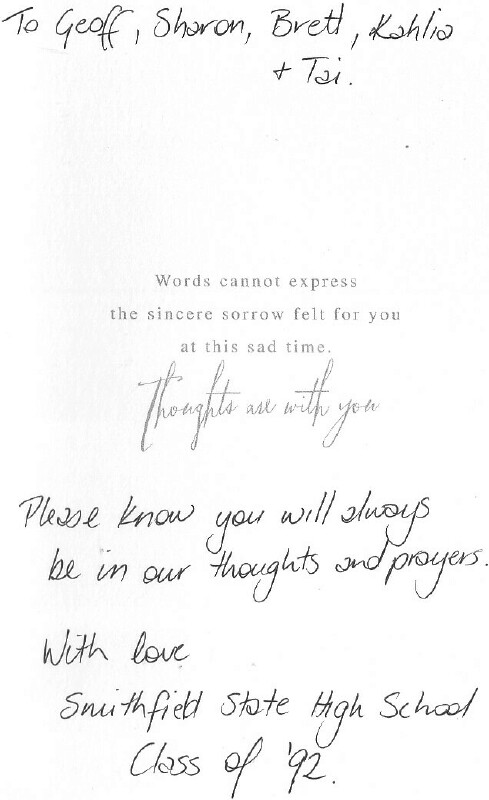 To Geoff, Sharon, Brett, Kahlia
+ Tai.
Words cannot express
the sincere sorrow felt for you
at this sad time.
Thoughts are with you
Please know you will always
be in our thoughts and prayers.
With love
Smithfield State High School
Class of '92.